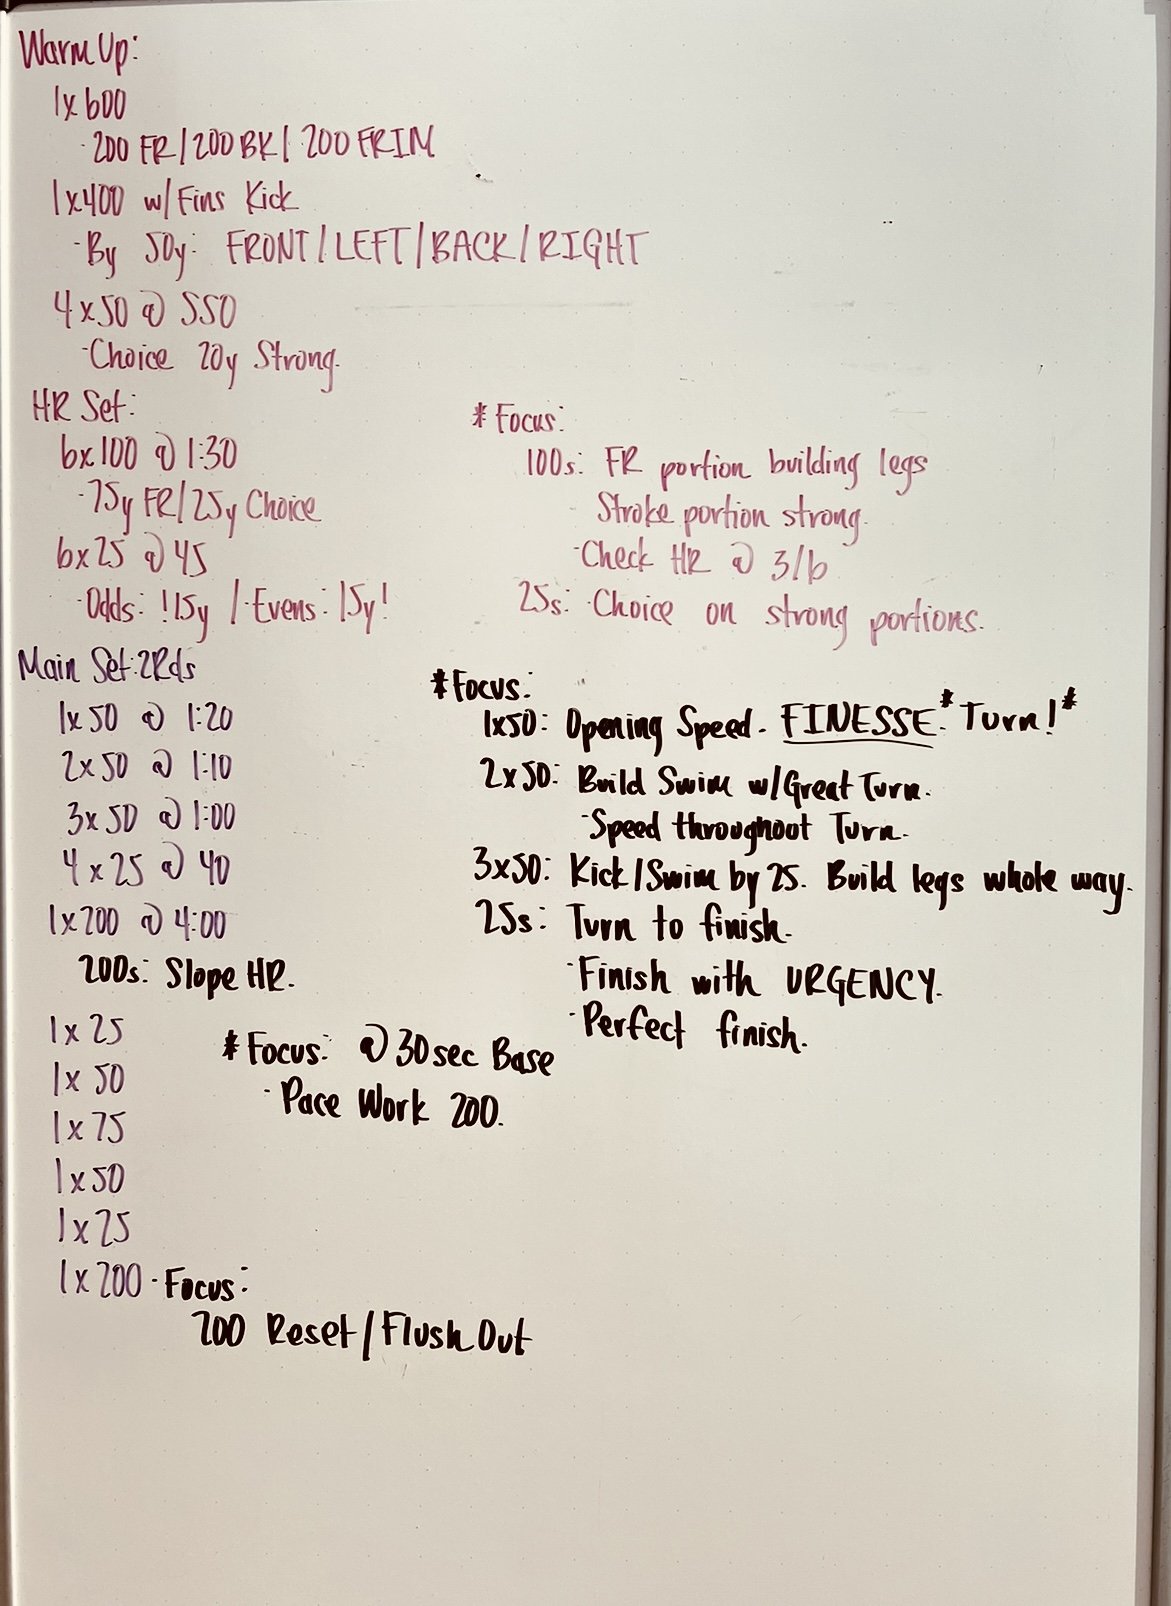 Warm Up:
1x600
·200 FR/200 BK/200 FRIM
1x400 w/Fins Kick
·By 50y: FRONT/LEFT/BACK/RIGHT
4x50 @ :50
·Choice 20y Strong.
HR Set:
6x100 @ 1:30
·75y FR/25y Choice
6x25 @ 45
·Odds: !15y / ·Evens: 15y!
*Focus:
100s: FR portion building legs
Stroke portion strong.
·Check HR @ 3/6
25s: ·Choice on strong portions.
Main Set: 2Rds
1x50 @ 1:20
2x50 @ 1:10
3x50 @ 1:00
4x25 @ 40
1x200 @ 4:00
200s: Slope HR.
*Focus:
1x50: Opening Speed. FINESSE. *Turn!*
2x50: Build Swim w/Great Turn.
·Speed throughout Turn.
3x50: Kick/Swim by 25. Build legs whole way.
25s: Turn to finish.
·Finish with URGENCY.
·Perfect finish.
1x25
1x50
1x75
1x50
1x25
*Focus: @ 30sec Base
·Pace Work 200.
1x200 ·Focus:
200 Reset/Flush Out